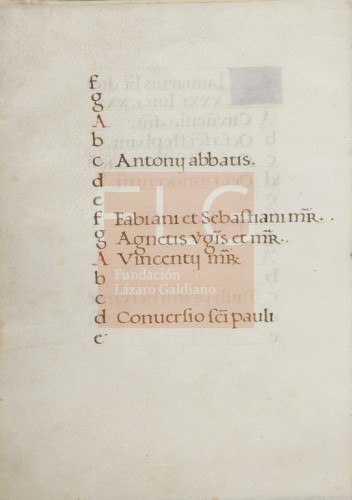 f
g
A
b
c Antonij abbatis.
d
e
f Fabiani et Sebastiani mr̄.
g Agnetis v̄gis et mr̄.
A Vincentij mr̄
b
c
d Conuersio sc̄i pauli
e
FLG
Fundación
Lázaro Galdiano